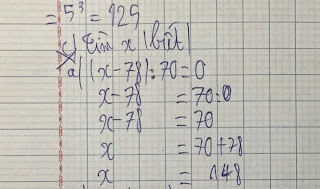 = 5³ = 125
Tìm x biết
a) (x-78):70=0
x-78 = 70:0
x-78 = 70
x = 70+78
x = 148